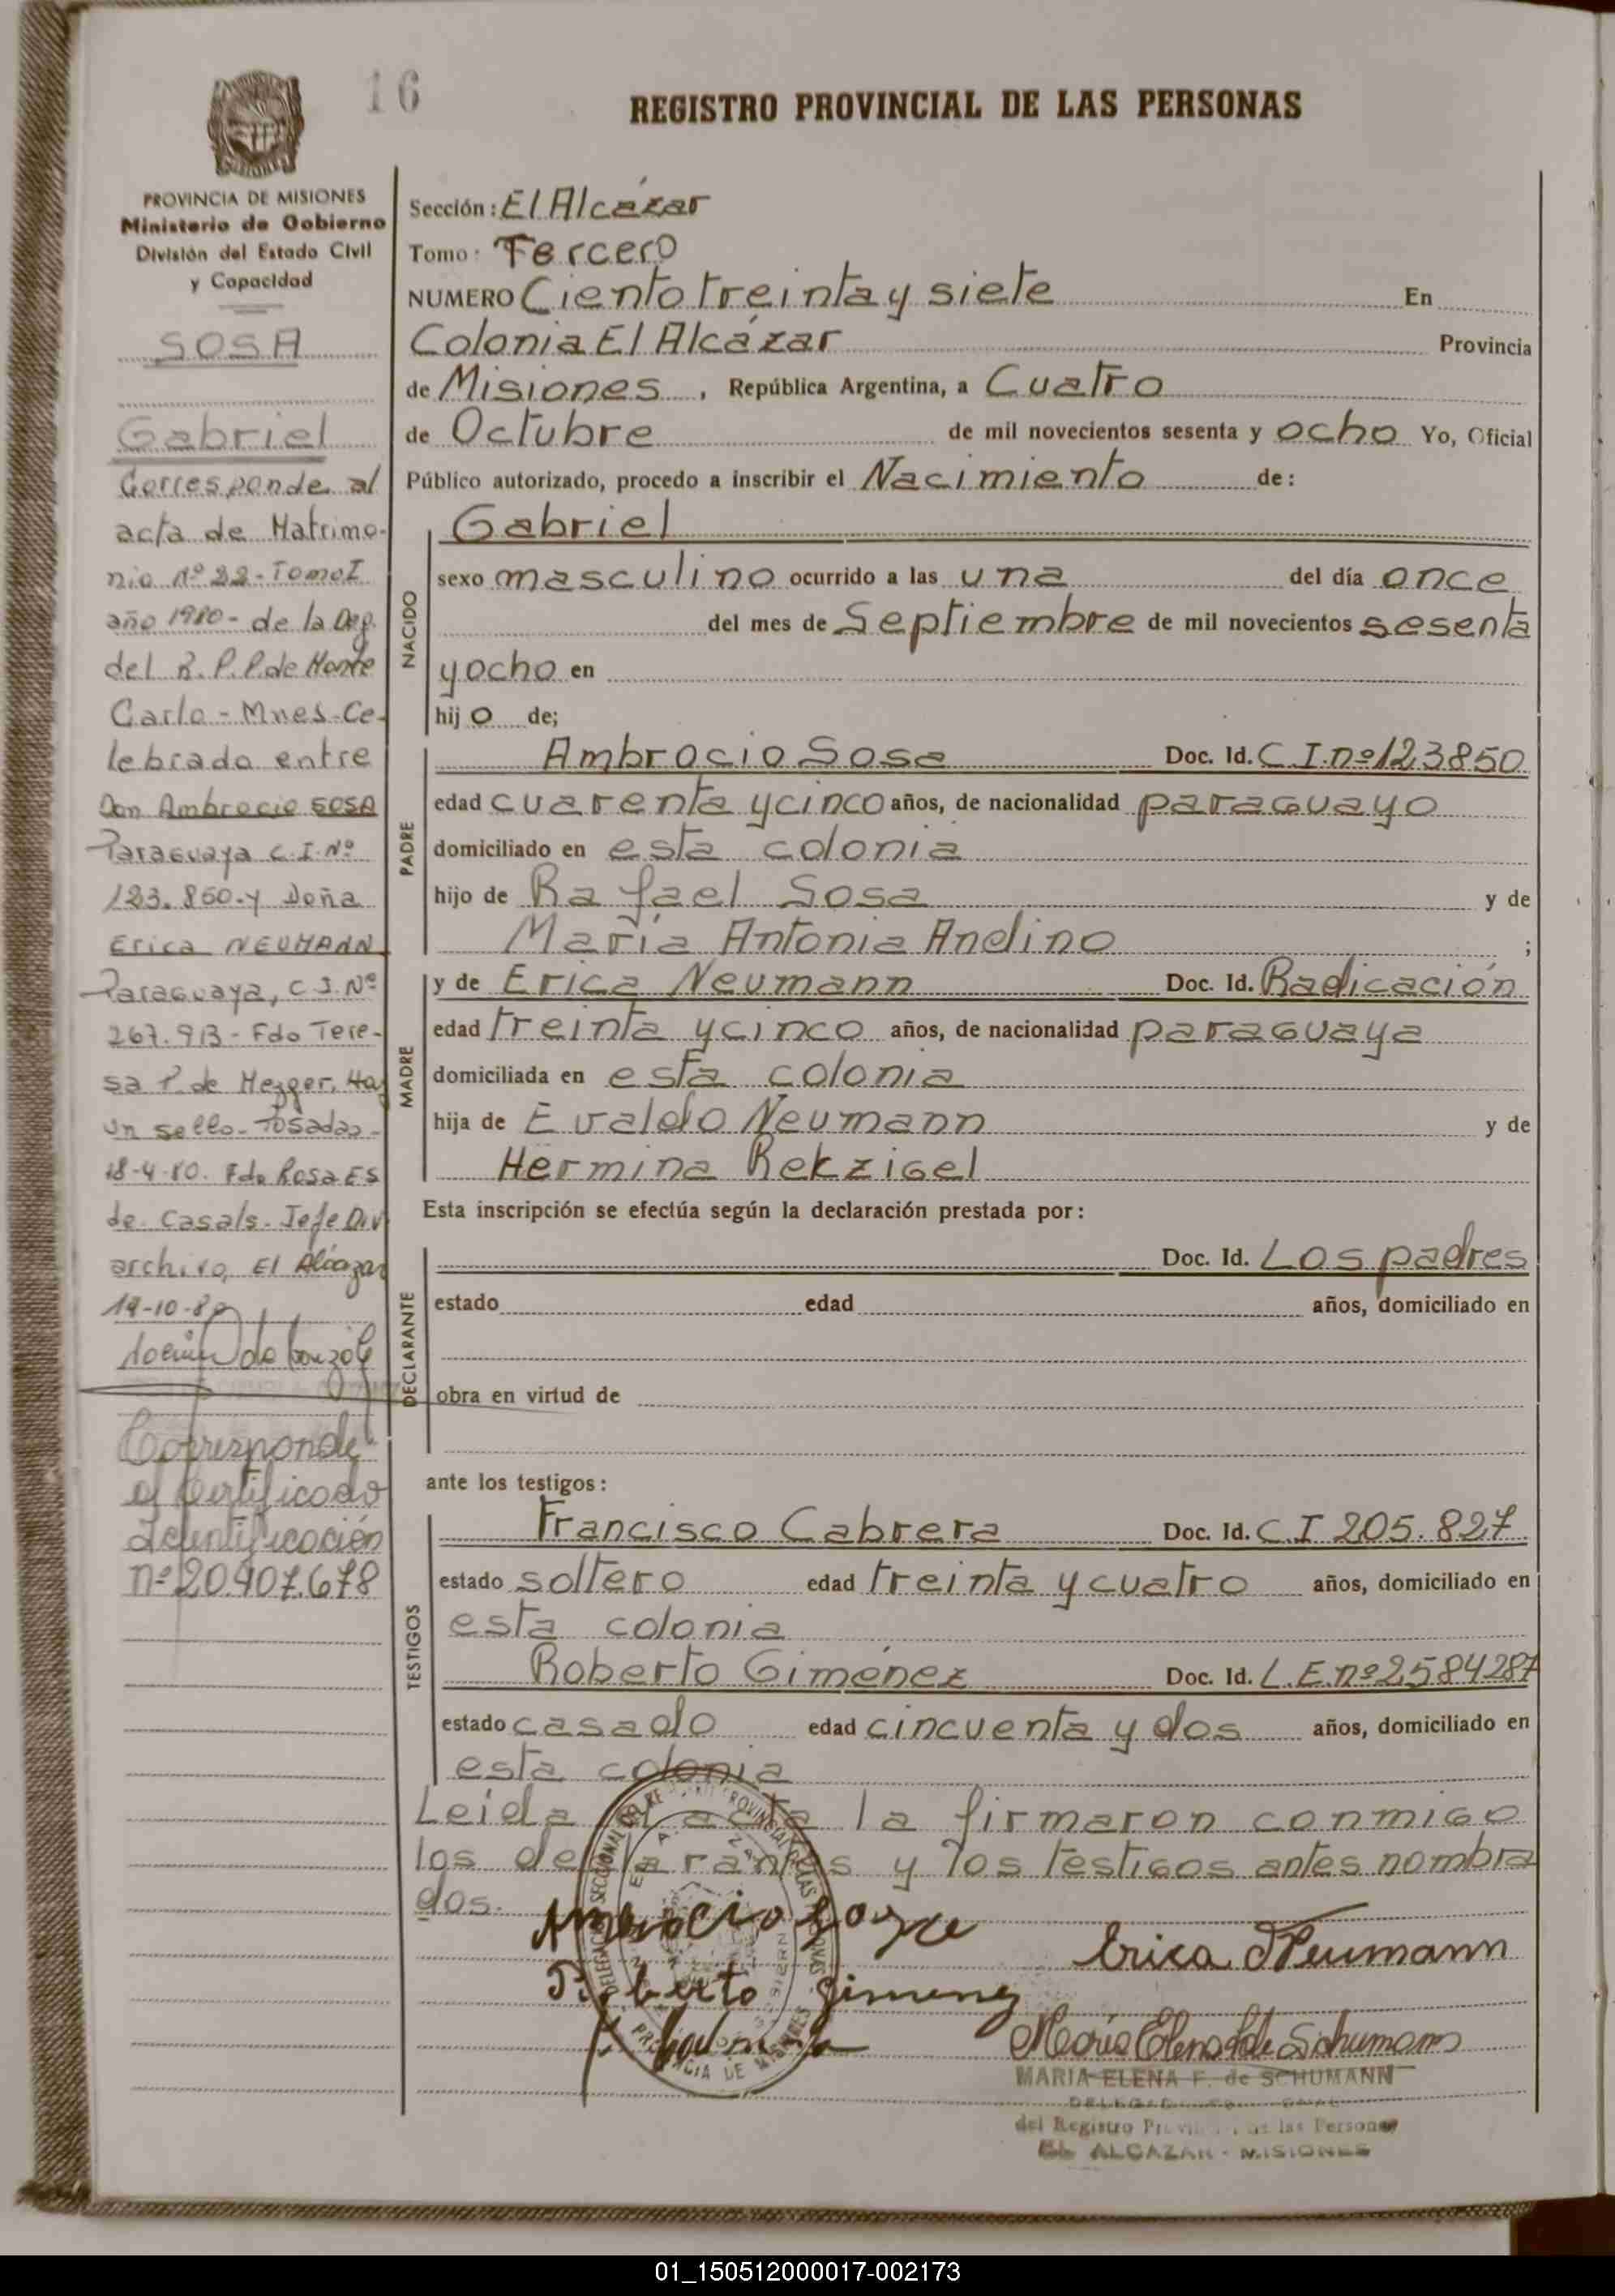 16
REGISTRO PROVINCIAL DE LAS PERSONAS
PROVINCIA DE MISIONES
Ministerio de Gobierno
División del Estado Civil
y Capacidad
SOSA
Gabriel
Corresponde al
acta de Matrimo-
nio Nº 22-Tomo I
año 1980- de la Deg.
del R.P.P. de Monte
Carlo - Mnes-Ce-
lebrado entre
Don Ambrocio SOSA
Paraguaya C.I. Nº
123.850-y Doña
Erica NEUMANN
Paraguaya, C.I. Nº
267.913-Fdo Tere-
sa P. de Mezger. Hay
un sello-Posadas-
18-4-80. Fdo Rosa ES
de Casals-Jefe Div
archivo, El Alcazar
14-10-80
Corresponde
el Certificado
Identificación
nº 20.907.678
Sección: El Alcázar
Tomo: Tercero
NUMERO Ciento treinta y siete En
Colonia El Alcázar Provincia
de Misiones, República Argentina, a Cuatro
de Octubre de mil novecientos sesenta y ocho Yo, Oficial
Público autorizado, procedo a inscribir el Nacimiento de:
NACIDO
Gabriel
sexo masculino ocurrido a las una del día once
del mes de Septiembre de mil novecientos sesenta
y ocho en
hijo de;
PADRE
Ambrocio Sosa Doc. Id. C.I. nº 123850
edad cuarenta y cinco años, de nacionalidad paraguayo
domiciliado en esta colonia
hijo de Rafael Sosa y de
María Antonia Andino ;
MADRE
y de Erica Neumann Doc. Id. Radicación
edad treinta y cinco años, de nacionalidad paraguaya
domiciliada en esta colonia
hija de Evaldo Neumann y de
Hermina Rekzigel
Esta inscripción se efectúa según la declaración prestada por:
DECLARANTE
Doc. Id. Los padres
estado edad años, domiciliado en
obra en virtud de
ante los testigos:
TESTIGOS
Francisco Cabrera Doc. Id. C.I 205.827
estado soltero edad treinta y cuatro años, domiciliado en
esta colonia
Roberto Giménez Doc. Id. L.E. nº 2584287
estado casado edad cincuenta y dos años, domiciliado en
esta colonia
Leída el acta la firmaron conmigo
los declarantes y los testigos antes nombra
dos.
Ambrocio
Erica Neumann
Roberto Gimenez
María Elena F. de Schumann
MARIA ELENA F. de SCHUMANN
del Registro Provincial de las Personas
EL ALCAZAR - MISIONES
PROVINCIA DE MISIONES
01_150512000017-002173